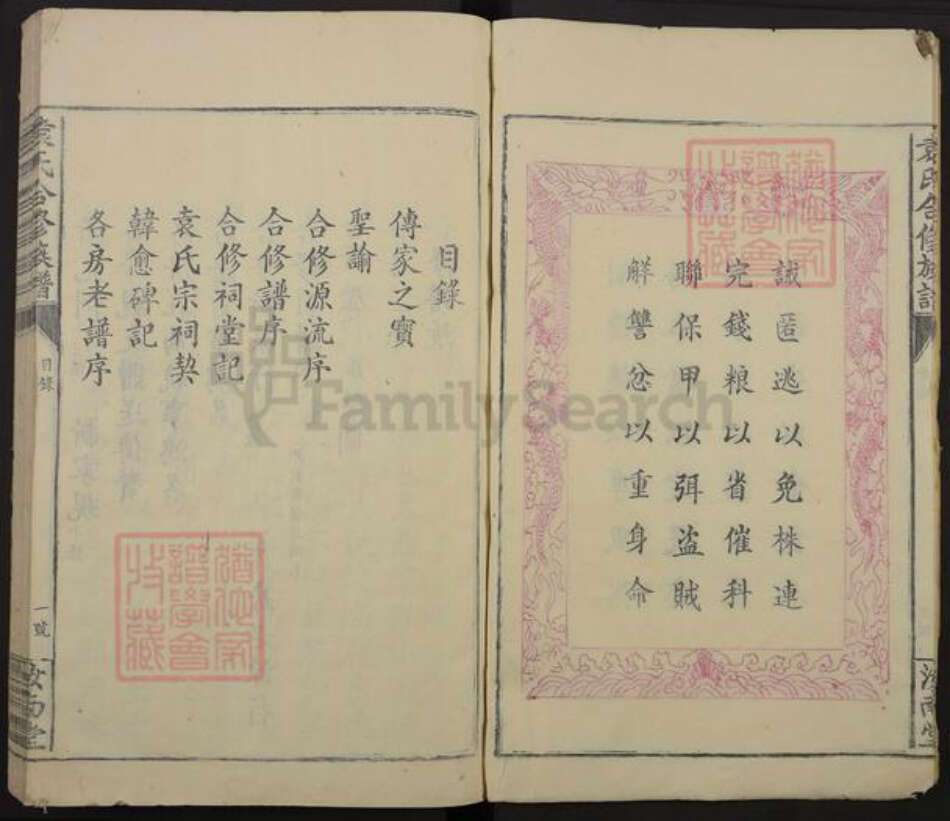 袁氏合修族譜
誡匿逃以免株連
完錢粮以省催科
聯保甲以弭盗賊
解讐忿以重身命
汝南堂
目錄
傳家之寶
聖諭
合修源流序
合修譜序
合修祠堂記
袁氏宗祠契
韓愈碑記
各房老譜序
袁氏合修族譜
目錄
一號
汝南堂
FamilySearch